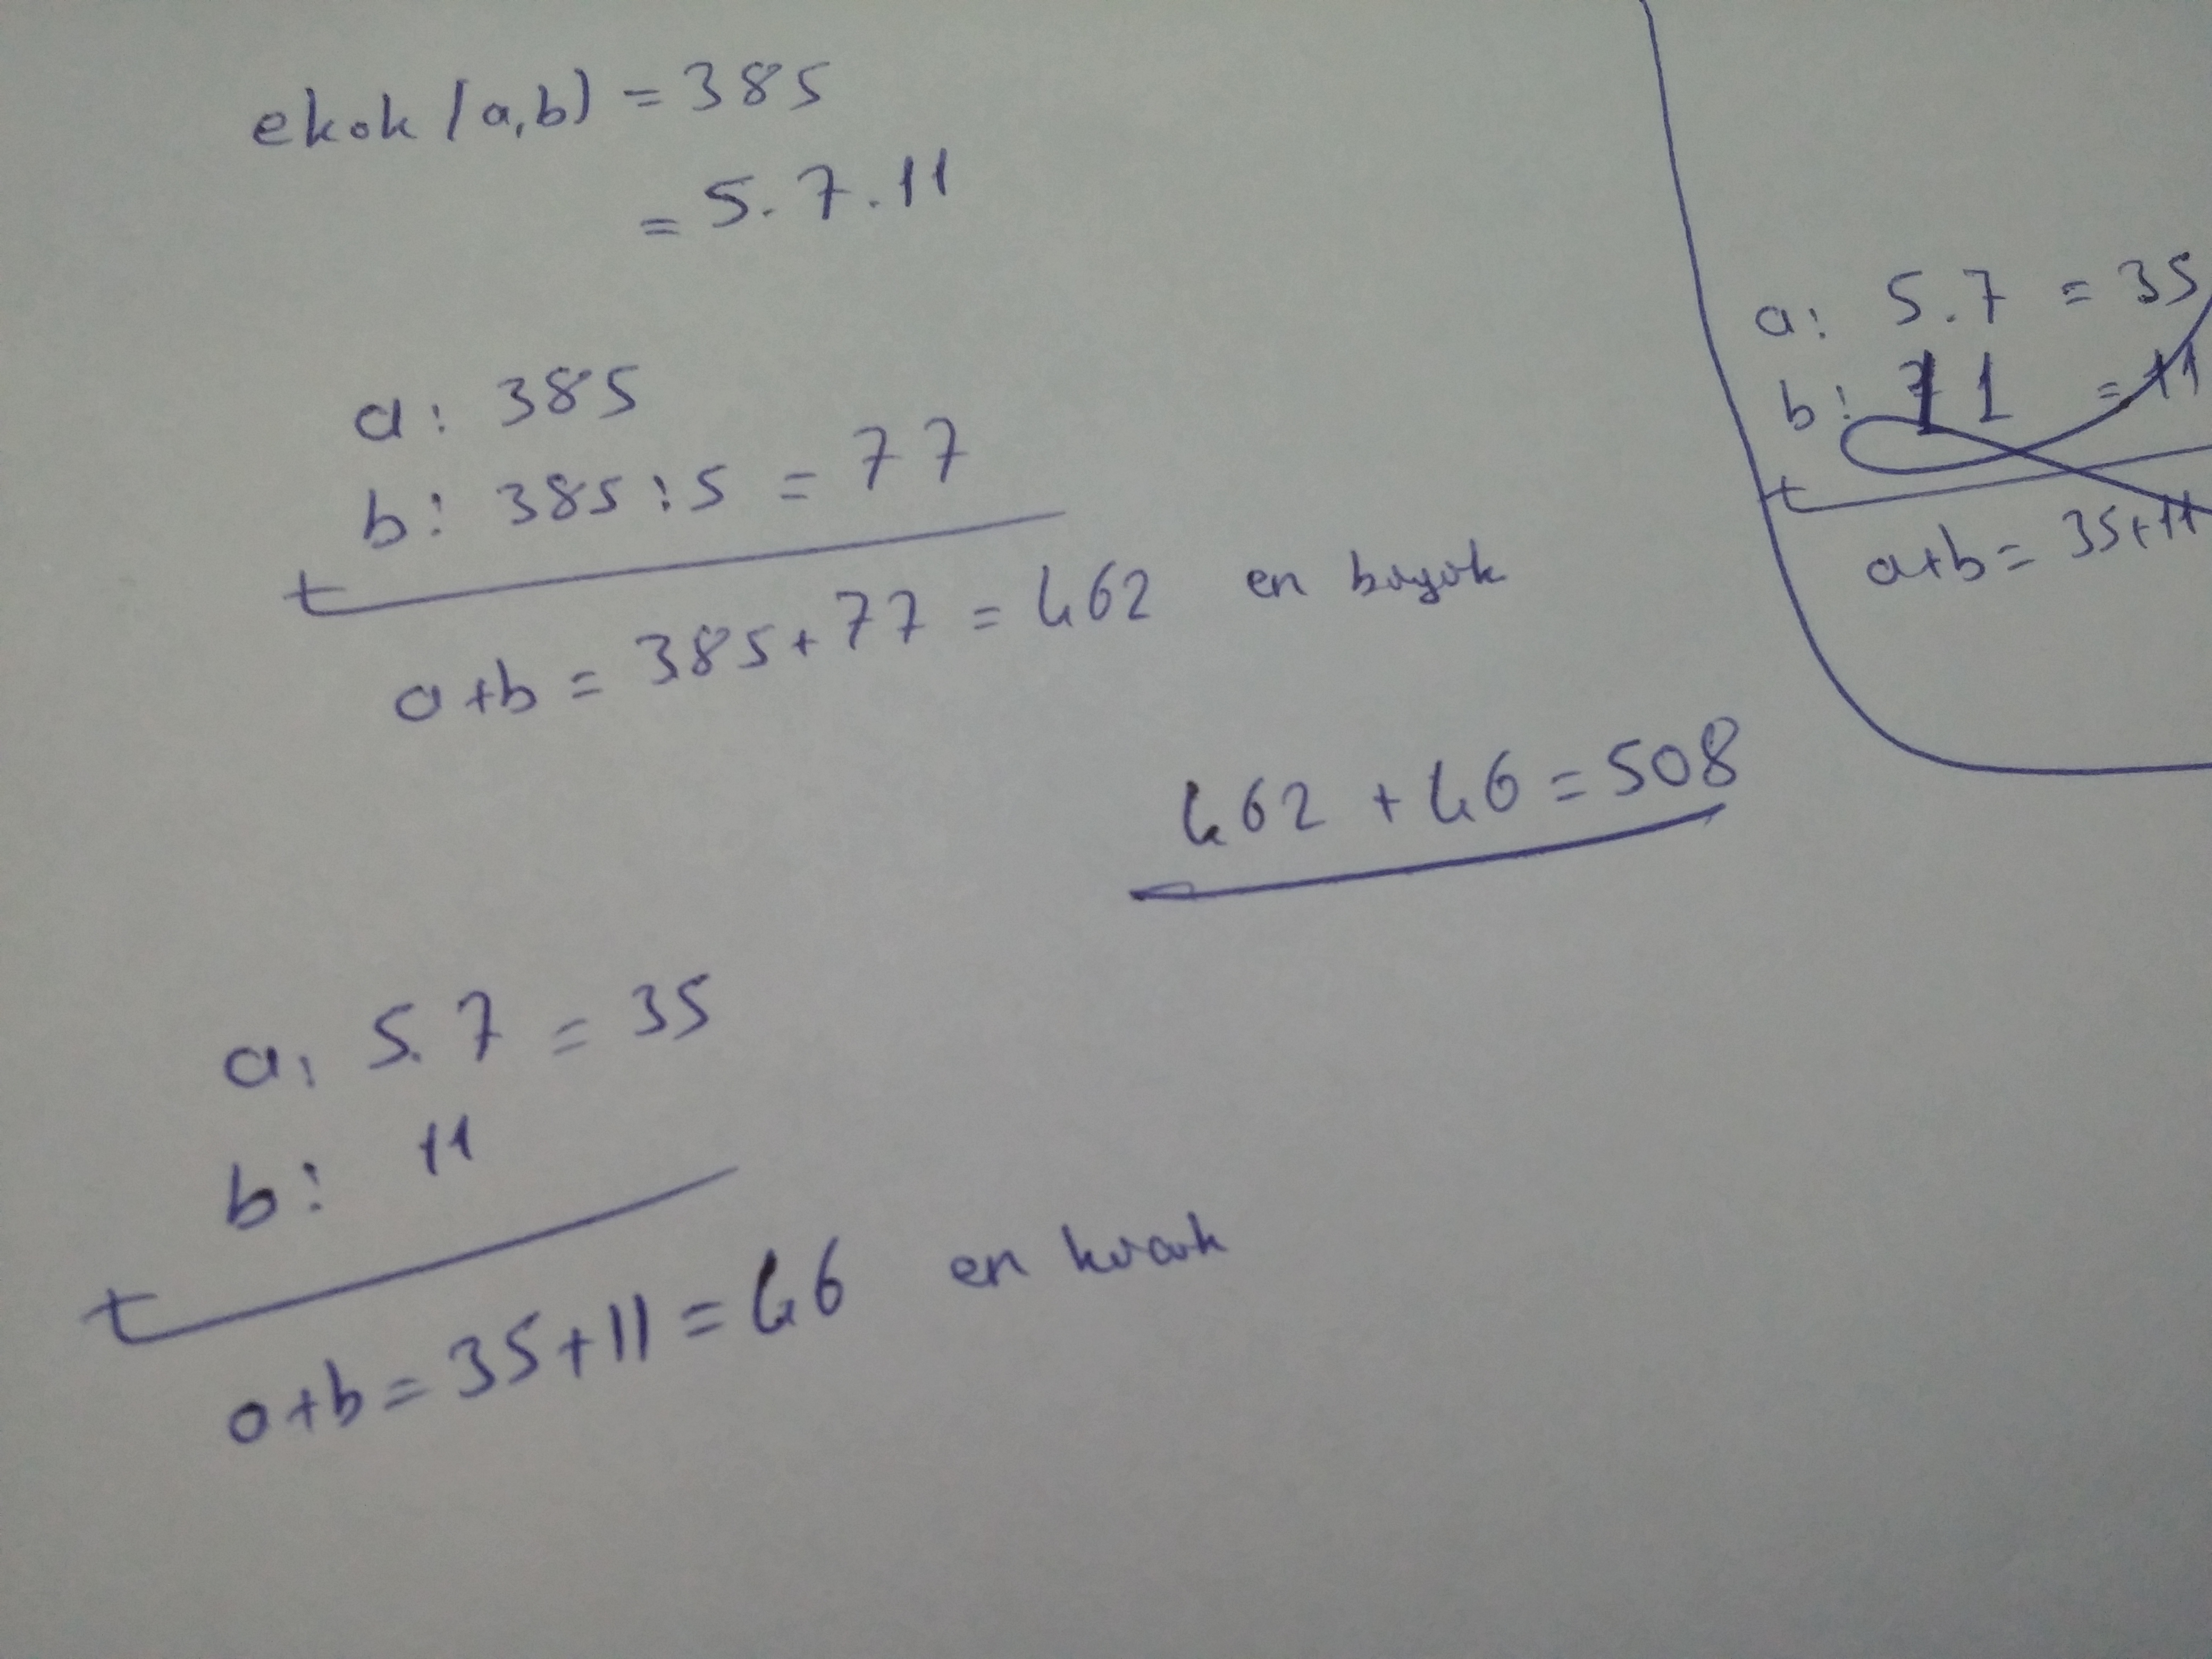 ekok (a,b) = 385
= 5.7.11
a: 385
b: 385:5 = 77
+
a+b = 385+77 = 462 en büyük
462 + 46 = 508
a: 5.7 = 35
b: 11
+
a+b = 35+11 = 46 en küçük
a: 5.7 = 35
b: 11 = 11
+
a+b = 35+11